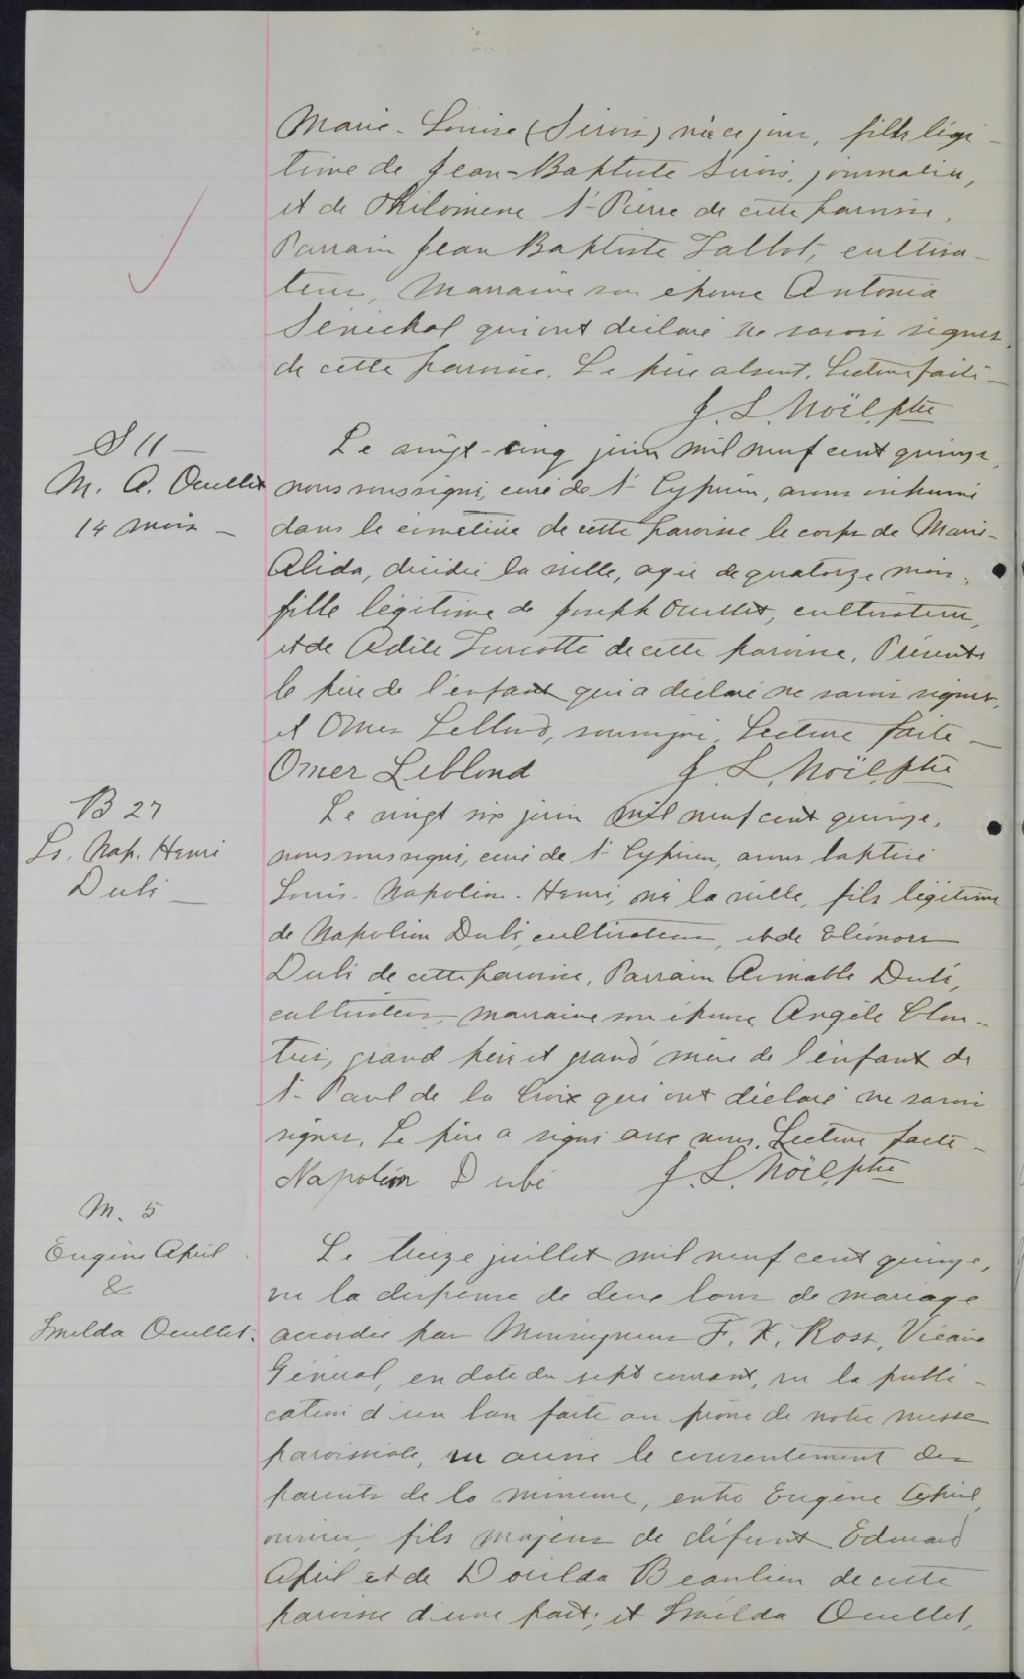 Marie-Louise (Sirois) née ce jour, fille légi-
time de Jean-Baptiste Sirois, journalier,
et de Philomène St-Pierre de cette paroisse.
Parrain Jean Baptiste Talbot, cultiva-
teur, Marraine son épouse Antonia
Sénéchal qui ont déclaré ne savoir signer,
de cette paroisse. Le père absent. Lecture faite-
J. L. Noël, ptre
S 11 -
M. A. Ouellet
14 mois -
Le vingt-cinq juin mil neuf cent quinze,
nous soussigné, curé de St Cyprien, avons inhumé
dans le cimetière de cette paroisse le corps de Marie-
Alida, décédée la veille, agée de quatorze mois,
fille légitime de Joseph Ouellet, cultivateur,
et de Adèle Turcotte de cette paroisse. Présents
le père de l'enfant qui a déclaré ne savoir signer,
et Omer Leblond, soussigné. Lecture faite -
Omer Leblond J. L. Noël, ptre
B 27
Ls. Nap. Henri
Dubé -
Le vingt six juin mil neuf cent quinze,
nous soussigné, curé de St Cyprien, avons baptisé
Louis-Napoléon-Henri, né la veille, fils légitime
de Napoléon Dubé, cultivateur, et de Eléonore
Dubé de cette paroisse. Parrain Aimable Dubé,
cultivateur, marraine son épouse Angèle Clou-
tier, grand père et grand'mère de l'enfant de
St-Paul de la Croix qui ont déclaré ne savoir
signer. Le père a signé avec nous. Lecture faite -
Napoléon Dubé J. L. Noël, ptre
M. 5
Eugène April
&
Imelda Ouellet.
Le treize juillet mil neuf cent quinze,
vu la dispense de deux bans de mariage
accordée par Monseigneur F. X. Ross, Vicaire
Général, en date du sept courant, vu la publi-
cation d'un ban faite au prône de notre messe
paroissiale, vu aussi le consentement des
parents de la mineure, entre Eugène April,
ouvrier, fils majeur de défunt Edouard
April et de Dorilda Beaulieu de cette
paroisse d'une part; et Imelda Ouellet,